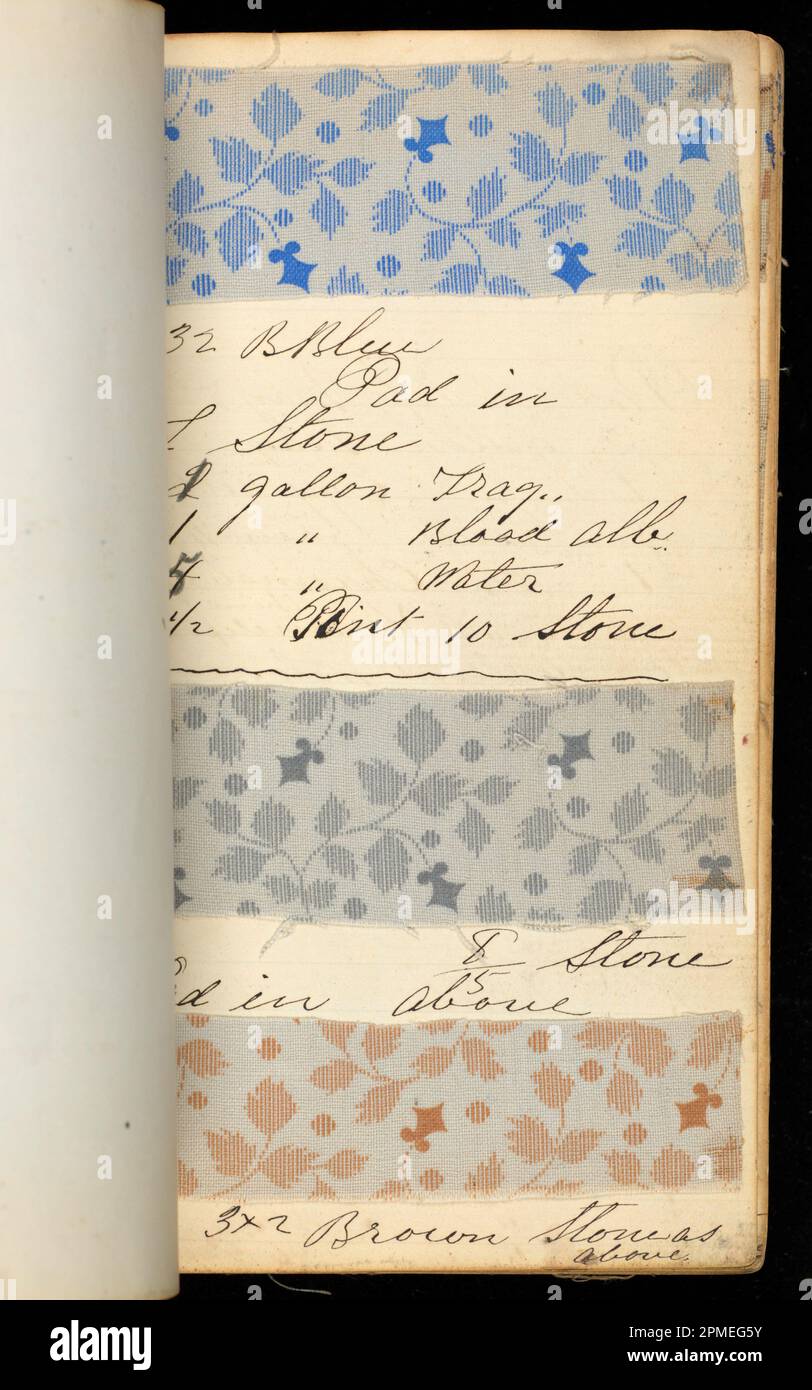 32 B Blue
Pad in
Stone
2 gallon Trag.,
1 " Blood Alb.
" Water
1/2 Pint 10 Stone
T/5 Stone
d in above
3x2 Brown Stone as
above.
alamy
Image ID: 2PMEG5Y
www.alamy.com